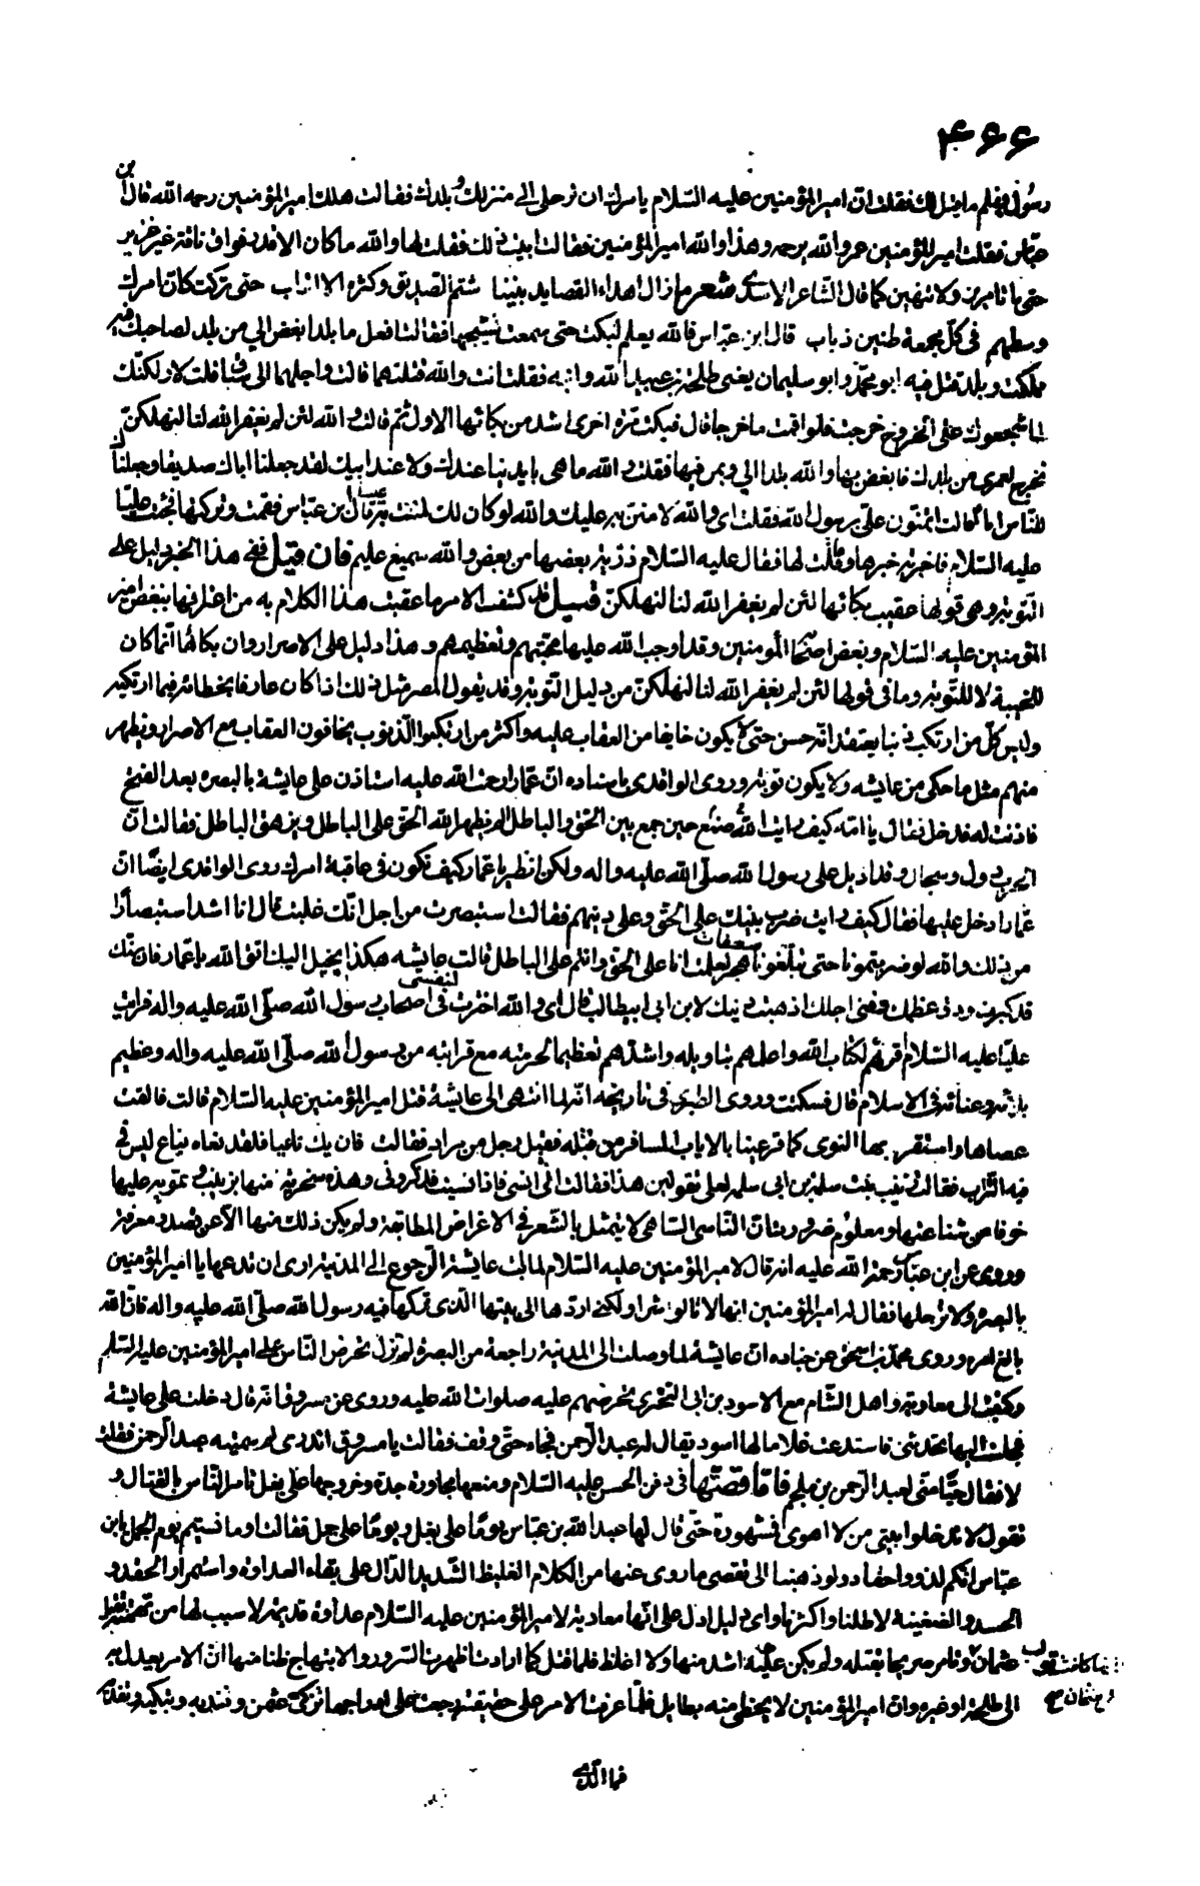 ۴۶۶
رسول فيعلم ما قيل لك فقلت ان امير المؤمنين عليه السلام يامرك ان ترحلى الى منزلك و بلدك فقالت هلك امير المؤمنين رحمه الله قال ابن
عباس فقلت امير المؤمنين عمر والله يرحمه وهذا والله امير المؤمنين فقالت ابيت ذلك فقلت لها والله ما كان الا قدر فواق ناقة غير غزير
حتى ما تامرين ولا تنهين كما قال الشاعر الاسدى شعر ما زال اهداء القصايد بيننا شتم الصديق وكثرة الالقاب حتى تركت كان امرك
وسطهم فى كل مجمعة طنين ذباب قال ابن عباس فالله يعلم لبكت حتى سمعت نشيجها فقالت افعل ما بلد ابغض الى من بلد لصاحبك فيه
مملكت و بلد قتل فيه ابو محمد و ابو سليمان يعنى طلحة بن عبيد الله وابنه فقلت انت والله قتلتهما قالت واجلهما الى قلت لا ولكنك
لما شجعوك على الخروج خرجت فلو اقمت ما خرجا قال فبكت مرة اخرى اشد من بكائها الاول ثم قالت والله لئن لم يغفر الله لنا لنهلكن
نخرج لعمرى من بلدك فابغض بها والله بلدا الى وبمن فيها فقلت والله ما هى بايدينا عندك ولا عند ابيك لقد جعلنا اباك صديقا وجعلناك
للناس اما قالت اتمنون على برسول الله فقلت اى والله لامنن به عليك والله لو كان لك لمننت به قال ابن عباس فقمت وتركتها فجئت عليا
عليه السلام فاخبرته خبرها وما قلت لها فقال عليه السلام ذرية بعضها من بعض والله سميع عليم فان قيل ففى هذا الخبر دليل على
التوبة وهى قولها عقيب بكائها لئن لم يغفر الله لنا لنهلكن قيل قد كشف الامر ما عقبت هذا الكلام به من اعترافها ببغض امير
المؤمنين عليه السلام وبغض اصحاب المؤمنين وقد اوجب الله عليها محبتهم وتعظيمهم وهذا دليل على الاصرار وان بكائها انما كان
للخيبة لا للتوبة وما فى قولها لئن لم يغفر الله لنا لنهلكن من دليل التوبة وقد يقول المصر مثل ذلك اذا كان عارفا بخطائه فيما ارتكبه
وليس كل من ارتكب ذنبا يعتقد انه حسن حتى لا يكون خايفا من العقاب عليه واكثر من ارتكبوا الذنوب يخافون العقاب مع الاصرار ويظهر
منهم مثل ما حكى من عايشه ولا يكون توبة وروى الواقدى باسناده ان عمارا رحمة الله عليه استاذن على عايشة بالبصره بعد الفتح
فاذنت له فدخل فقال يا امه كيف رايت الله صنع حين جمع بين الحق والباطل الم يظهر الله الحق على الباطل ويزهق الباطل فقالت ان
الحرب دول وسجال وقد اديل على رسول الله صلى الله عليه واله ولكن انظر يا عمار كيف تكون فى عاقبة امرك وروى الواقدى ايضا ان
عمارا دخل عليها فقال كيف رايت ضرب بنيك على الحق وعلى دينهم فقالت استبصرت من اجل انك غلبت قال انا اشد استبصارا
من ذلك والله لو ضربتمونا حتى تبلغونا سعفات هجر لعلمت انا على الحق وانتم على الباطل قالت عايشه هكذا يخيل اليك اتق الله يا عمار فان سنك
قد كبرت ودق عظمك وفنى اجلك اذهبت دينك لابن ابى ابيطالب قال اى والله اخترت لنفسى فى اصحاب رسول الله صلى الله عليه واله فرايت
عليا عليه السلام اقرئهم لكتاب الله واعلمهم بتاويله واشدهم تعظيما لحرمته مع قرابته من رسول الله صلى الله عليه واله وعظيم
بلائه وعنائه فى الاسلام قال فسكتت وروى الطبرى فى تاريخه انه لما انتهى الى عايشة قتل امير المؤمنين عليه السلام قالت فالقت
عصاها واستقر بها النوى كما قر عينا بالاياب المسافر من قتله فقيل رجل من مراد فقالت فان يك ناعيا فلقد نعاه نباع ليس فى
فيه التراب فقالت زينب بنت سلمة بن ابى سلمه لعلى تقولين هذا فقالت انى انسى فاذا نسيت فذكرونى وهذه سخرية منها بزينب وتمويه عليها
خوفا من شناعتها ومعلوم ضرورة ان الناسى الساهى لا يتمثل بالشعر فى الاغراض المطابقة ولم يكن ذلك منها الا عن قصد ومعرفة
وروى عن ابن عباس رحمة الله عليه انه قال لامير المؤمنين عليه السلام لما ابت عايشة الرجوع الى المدينة ارى ان تدعها يا امير المؤمنين
بالبصرة ولا ترحلها فقال له امير المؤمنين انها لا تالو شرا ولكنى اردها الى بيتها الذى تركها فيه رسول الله صلى الله عليه واله فان الله
بالغ امره وروى محمد بن اسحق عن جناده ان عايشة لما وصلت الى المدينة راجعة من البصرة لم تزل تحرض الناس على امير المؤمنين عليه السلم
وكتبت الى معاوية واهل الشام مع الاسود بن ابى البخترى تحرضهم عليه صلوات الله عليه وروى عن مسروق انه قال دخلت على عايشة
فجلست اليها تحدثنى فاستدعت غلاما لها اسود يقال له عبد الرحمن فجاء حتى وقف فقالت يا مسروق اتدرى لم سميته عبد الرحمن فقلت
لا فقال حبا منى لعبد الرحمن بن ملجم فاما قصتها فى دفن الحسن عليه السلام ومنعها مجاورة جده وخروجها على بغل تامر الناس بالقتال و
تقول لا تدخلوا بيتى من لا اهوى فشهورة حتى قال لها عبد الله بن عباس يوما على بغل و يوما على جمل فقالت او ما نسيتم يوم الجمل يا بن
عباس انكم لذووا حقاد ولو ذهبنا الى تقصى ما روى عنها من الكلام الغليظ الشديد الدال على بقاء العداوة واستمرار الحقد و
الحسد والضغينة لاطلنا واكثرنا واى دليل ادل على انها معادية لامير المؤمنين عليه السلام عداوة قديمة لا سبب لها من تهمته بقتل
عثمان وتامر صريحا بقتله ولم يكن عليه احد اشد منها ولا اغلظ فلما قتل كما ارادت اظهرت السرور والابتهاج ظنا منها ان الامر يعدل به
الى طلحة او غيره وان امير المؤمنين لا يحظى منه بطايل فلما عرفت الامر على حقيقته رجعت على ادراجها تزكى عثمن وتندبه وتبكيه وتقول
فما الذى